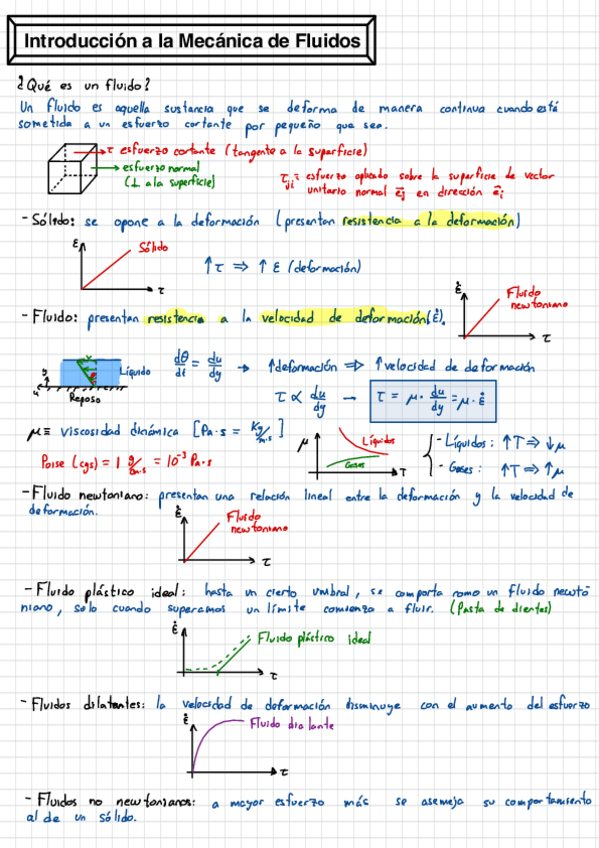 Introducción a la Mecánica de Fluidos
¿Qué es un fluido?
Un fluido es aquella sustancia que se deforma de manera continua cuando está
sometida a un esfuerzo cortante por pequeño que sea.
τ esfuerzo cortante (tangente a la superficie)
esfuerzo normal
(⊥ a la superficie)
τji = esfuerzo aplicado sobre la superficie de vector
unitario normal e⃗j en dirección e⃗i
- Sólido: se opone a la deformación (presentan resistencia a la deformación)
ε
Sólido
τ
↑τ ⇒ ↑ε (deformación)
- Fluido: presentan resistencia a la velocidad de deformación (ε̇).
ε̇
Fluido
newtoniano
τ
Líquido
Reposo
dθ/dt = du/dy → ↑deformación ⇒ ↑velocidad de deformación
τ ∝ du/dy → τ = μ · du/dy = μ · ε̇
μ ≡ viscosidad dinámica [Pa·s = Kg/m·s]
Poise (cgs) = 1 g/cm·s = 10⁻³ Pa·s
μ
Líquidos
Gases
T
- Líquidos: ↑T ⇒ ↓μ
- Gases: ↑T ⇒ ↑μ
- Fluido newtoniano: presentan una relación lineal entre la deformación y la velocidad de
deformación.
ε̇
Fluido
newtoniano
τ
- Fluido plástico ideal: hasta un cierto umbral, se comporta como un fluido newto-
niano, solo cuando superamos un límite comienza a fluir. (Pasta de dientes)
ε̇
Fluido plástico ideal
τ
- Fluidos dilatantes: la velocidad de deformación disminuye con el aumento del esfuerzo
ε̇
Fluido dialante
τ
- Fluidos no newtonianos: a mayor esfuerzo más se asemeja su comportamiento
al de un sólido.